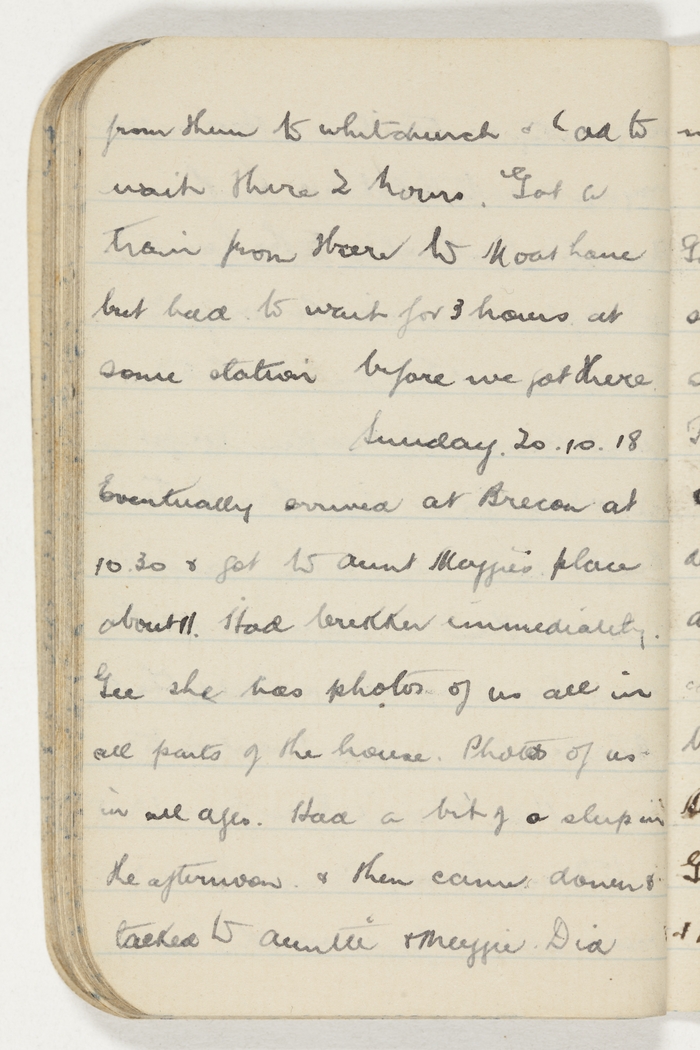 from them to whitchurch & had to
wait there 2 hours. Got a
train from there to Moat lane
but had to wait for 3 hours at
some station before we got there.
Sunday. 20.10.18
Eventually arrived at Brecon at
10.30 & got to aunt Maggie's place
about 11. Had brekker immediately.
Gee she has photos of us all in
all parts of the house. Photos of us
in all ages. Had a bit of a sleep in
the afternoon. & then came down &
talked to auntie & Maggie. Did